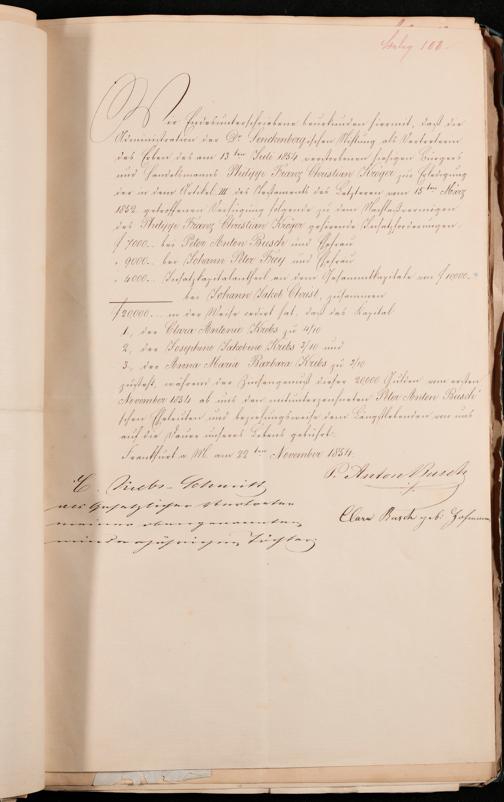 Beleg 103.
Wir Endesunterschriebene beurkunden hiermit, daß die
Administration der Dr. Senckenbergischen Stiftung als Vertreterin
des Erben des am 13ten Juli 1854 verstorbenen hiesigen Bürgers
und Handelsmanns Philipp Franz Christian Kröger zu Erledigung
der in dem Artikel III des Testaments des Letzteren vom 15ten März
1852 getroffenen Verfügung folgende zu dem Nachlaßvermögen
des Philipp Franz Christian Kröger gehörende Insatzforderungen
f 7000.. bei Peter Anton Busch und Ehefrau
" 9000.. bei Johann Peter Frey und Ehefrau
" 4000.. Insatzkapitalantheil an dem Gesammtkapitale von f 10000.-
bei Johann Jakob Christ, zusammen
f 20000.... in der Weise cedirt hat, daß das Kapital
1., der Clara Antonie Krebs zu 4/10
2., der Josephine Jakobine Krebs 3/10 und
3., der Anna Maria Barbara Krebs zu 3/10
zusteht, während der Zinsengenuß dieser 20000 Gulden vom ersten
November 1854 ab uns den mitunterzeichneten Peter Anton Busch
schen Eheleuten und beziehungsweise dem Längstlebenden von uns
auf die Dauer unseres Lebens gebührt.
Frankfurt a M. am 22ten November 1854.
P. Anton Busch
C. Krebs-Schmitt
als Gesetzlicher Vertreter
meiner oben genannten
minderjährigen Töchter
Clara Busch geb.